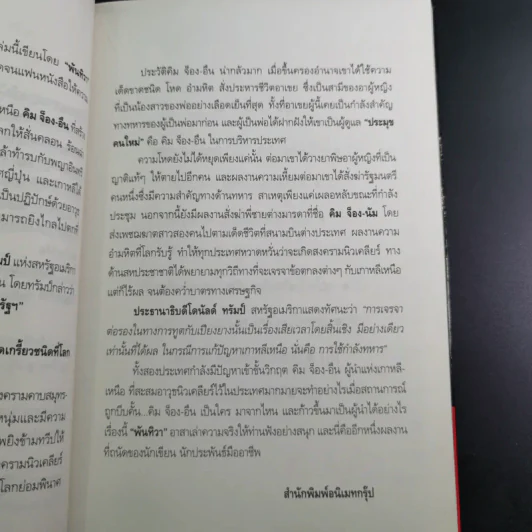 ล่มนี้เขียนโดย "พันทิวา"
ตจนแฟนหนังสือให้ความ
หนือ คิม จ็อง-อึน ที่สร้าง
ลกให้สั่นคลอน ร้อน
ล้าท้ารบกับพญาอินทรี
ญี่ปุ่น และเกาหลีใต้
เป็นปฏิปักษ์ด้วยอาวุธ
มารถยิงไกลไปตก
ป์ แห่งสหรัฐอเมริกา
น โดยทรัมป์กล่าวว่า
รัฐฯ"
ดเกรี้ยวชนิดที่โลก
งครามคาบสมุทร
หนุ่มและมีความ
พยิงข้ามทวีปให้
ครามนิวเคลียร์
โลกย่อมพินาศ
ประวัติคิม จ็อง-อึน น่ากลัวมาก เมื่อขึ้นครองอำนาจเขาได้ใช้ความ
เด็ดขาดชนิด โหด อำมหิต สั่งประหารชีวิตอาเขย ซึ่งเป็นสามีของอาผู้หญิง
ที่เป็นน้องสาวของพ่ออย่างเลือดเย็นที่สุด ทั้งที่อาเขยผู้นี้เคยเป็นกำลังสำคัญ
ทางทหารของผู้เป็นพ่อมาก่อน และผู้เป็นพ่อได้ฝากฝังให้เขาเป็นผู้ดูแล "ประมุข
คนใหม่" คือ คิม จ็อง-อึน ในการบริหารประเทศ
ความโหดยังไม่ได้หยุดเพียงแค่นั้น ต่อมาเขาได้วางยาพิษอาผู้หญิงที่เป็น
ญาติแท้ๆ ให้ตายไปอีกคน และผลงานความเหี้ยมต่อมาเขาได้สั่งฆ่ารัฐมนตรี
คนหนึ่งซึ่งมีความสำคัญทางด้านทหาร สาเหตุเพียงแค่เผลอหลับขณะที่กำลัง
ประชุม นอกจากนี้ยังมีผลงานสั่งฆ่าพี่ชายต่างมารดาที่ชื่อ คิม จ็อง-นัม โดย
ส่งเพชฌฆาตสาวสองคนไปตามเด็ดชีวิตที่สนามบินต่างประเทศ ผลงานความ
อำมหิตที่โลกรับรู้ ทำให้ทุกประเทศหวาดหวั่นว่าจะเกิดสงครามนิวเคลียร์ ทาง
ด้านสหประชาชาติได้พยายามทุกวิถีทางที่จะเจรจาข้อตกลงต่างๆ กับเกาหลีเหนือ
แต่ก็ไร้ผล จนต้องคว่ำบาตรทางเศรษฐกิจ
ประธานาธิบดีโดนัลด์ ทรัมป์ สหรัฐอเมริกาแสดงทัศนะว่า "การเจรจา
ต่อรองในทางการทูตกับเปียงยางนั้นเป็นเรื่องเสียเวลาโดยสิ้นเชิง มีอย่างเดียว
เท่านั้นที่ได้ผล ในกรณีการแก้ปัญหาเกาหลีเหนือ นั่นคือ การใช้กำลังทหาร"
ทั้งสองประเทศกำลังมีปัญหาเข้าขั้นวิกฤต คิม จ็อง-อึน ผู้นำแห่งเกาหลี-
เหนือ ที่สะสมอาวุธนิวเคลียร์ไว้ในประเทศมากมายจะทำอย่างไรเมื่อสถานการณ์
ถูกบีบคั้น..คิม จ็อง-อึน เป็นใคร มาจากไหน และก้าวขึ้นมาเป็นผู้นำได้อย่างไร
เรื่องนี้ "พันทิวา" อาสาเล่าความจริงให้ท่านฟังอย่างสนุก และนี่คืออีกหนึ่งผลงาน
ที่ถนัดของนักเขียน นักประพันธ์มืออาชีพ
สำนักพิมพ์อนิเมทกรุ๊ป